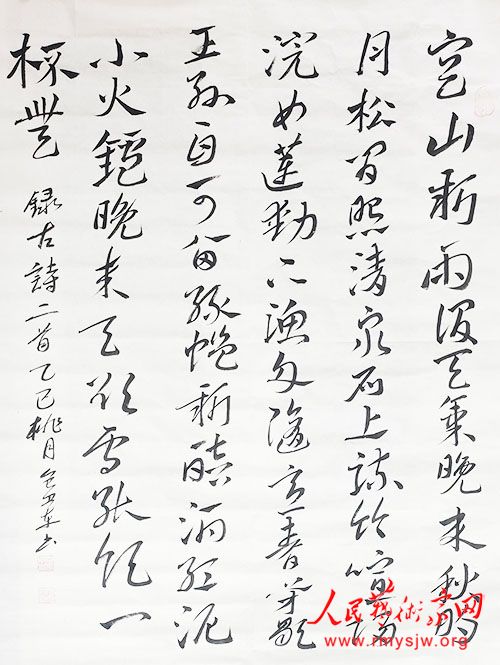 空山新雨後天氣晚来秋明
月松间照清泉石上流竹喧歸
浣女蓮動下渔舟随意春芳歇
王孫自可留緑螘新醅酒红泥
小火鑪晚来天欲雪能飲一
杯無
録古詩二首乙巳桃月
人民藝術家网
www.rmysjw.org